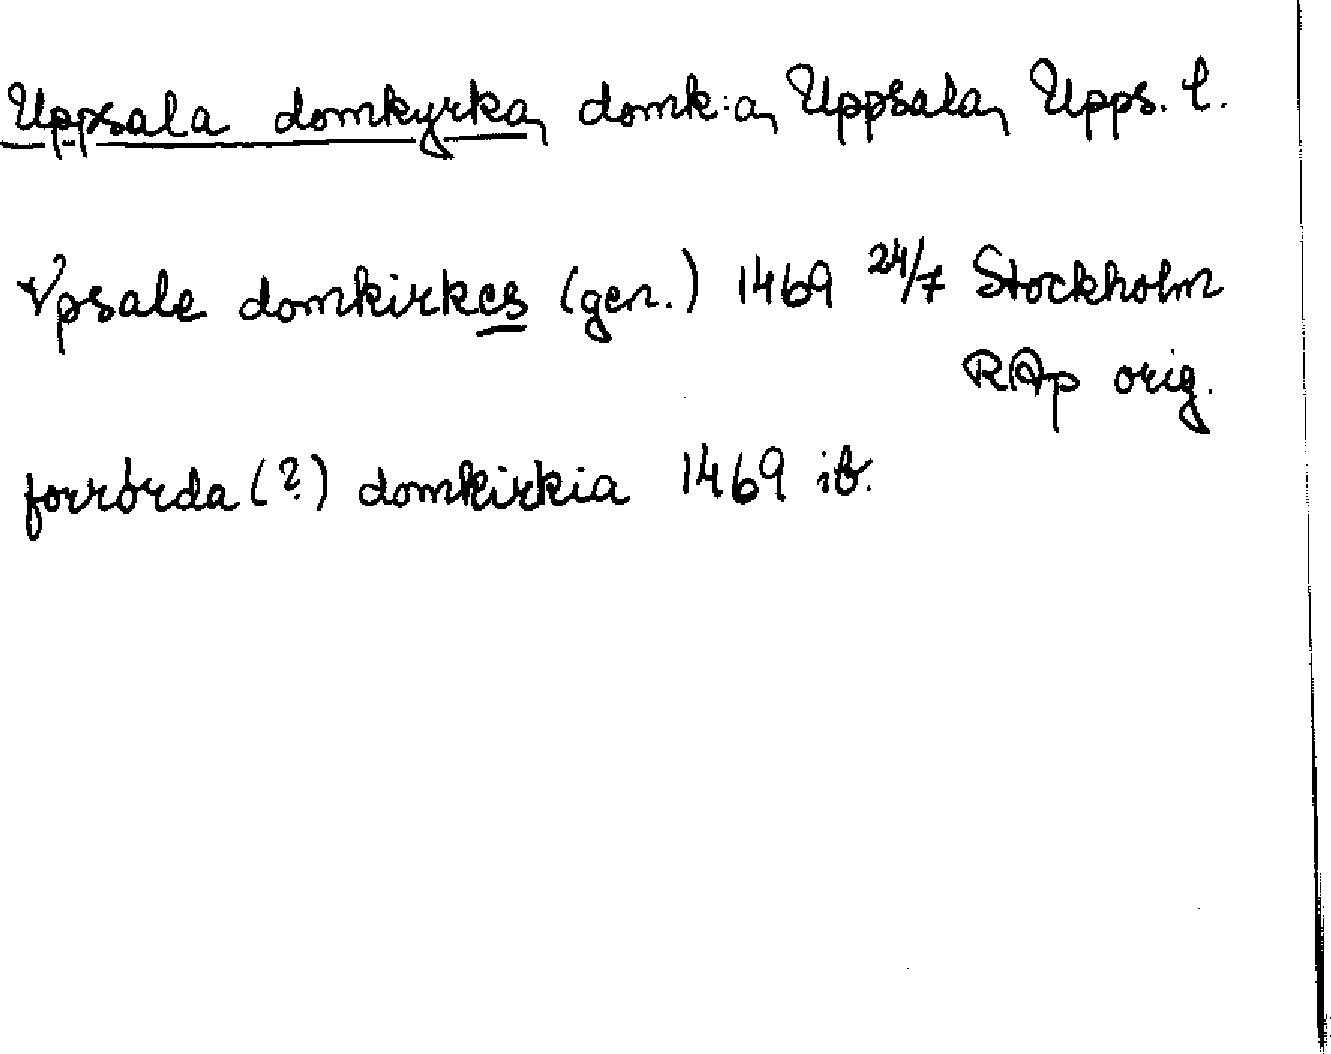 Uppsala domkyrka, domk:a, Uppsala, Upps. l.
Vpsale domkirkes (gen.) 1469 24/7 Stockholm
RAp orig.
forrórda (?) domkirkia 1469 ib.